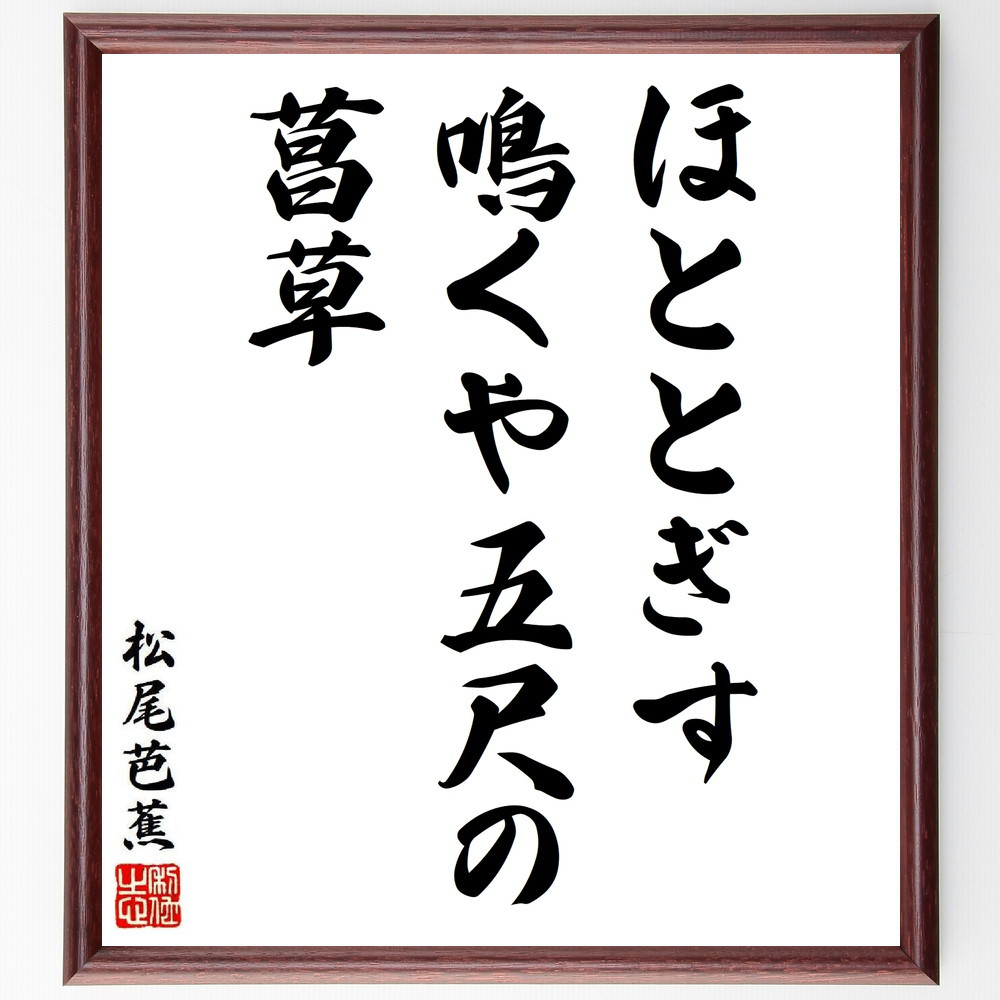 ほととぎす
鳴くや五尺の
菖草
松尾芭蕉